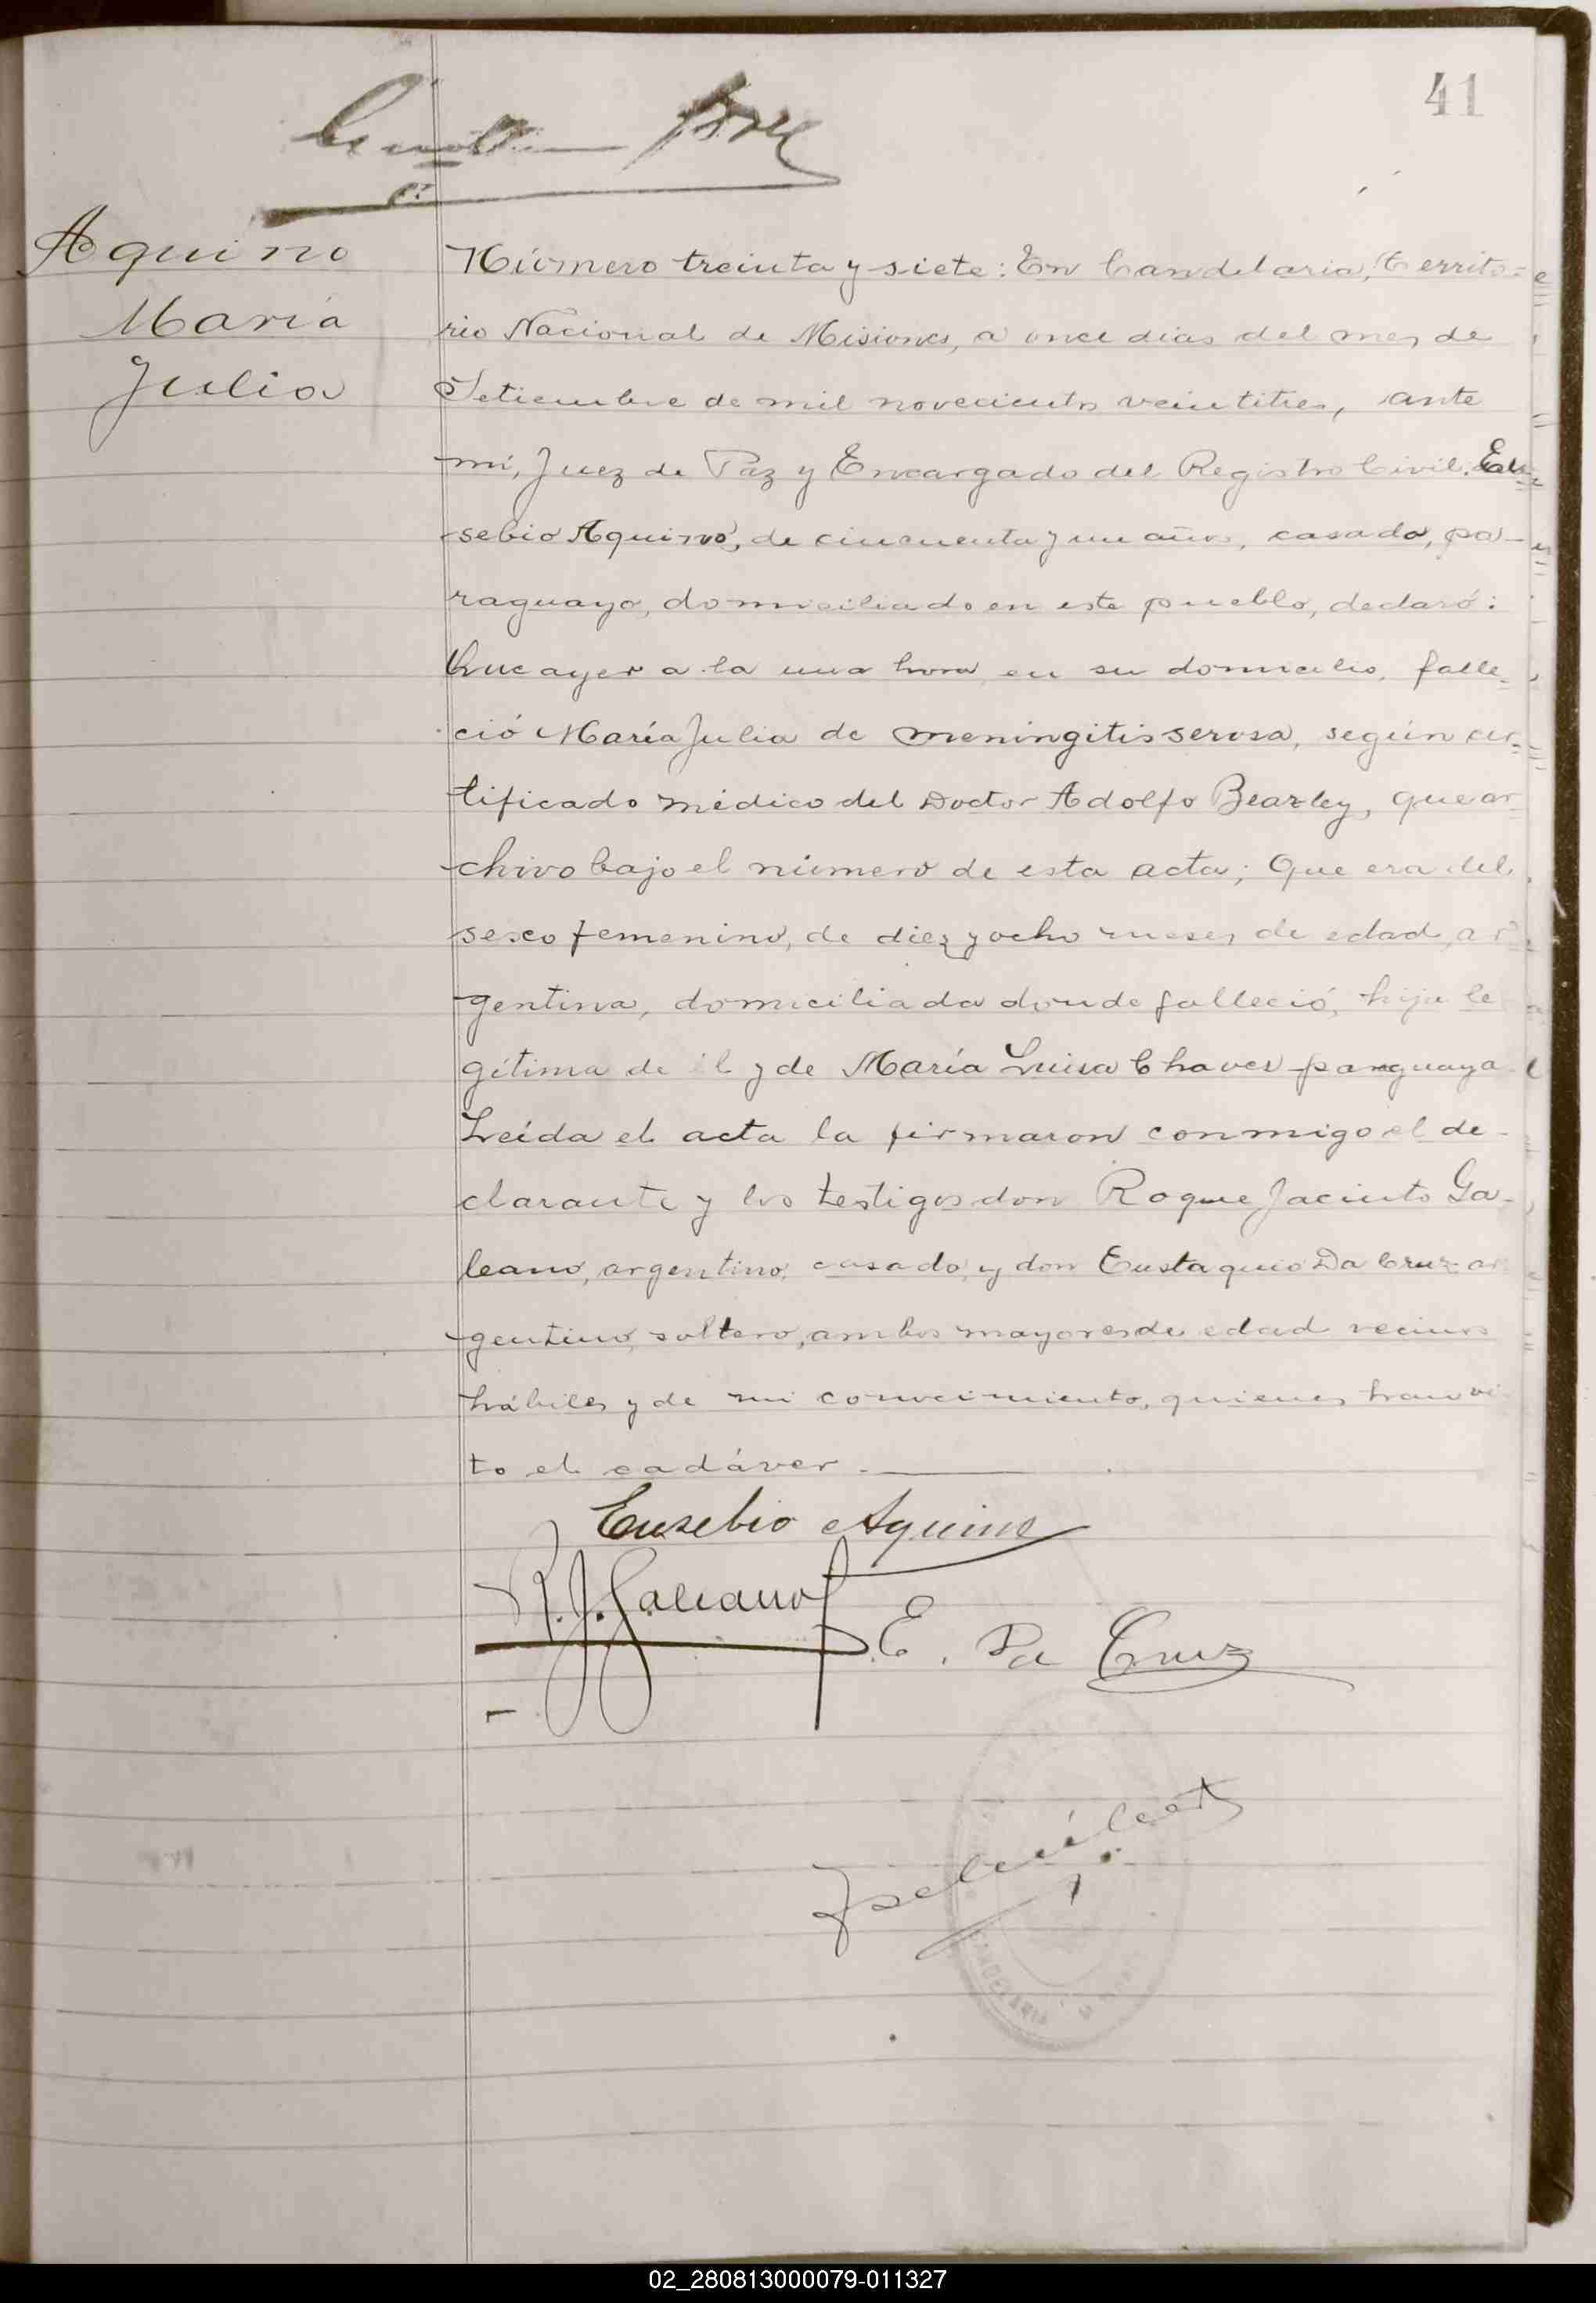 41
Aquino
María
Julia
Número treinta y siete: En Candelaria, Territo=
rio Nacional de Misiones, a once dias del mes de
Setiembre de mil novecientos veintitres, ante
mi, Juez de Paz y Encargado del Registro Civil. Eu=
sebio Aquino, de cincuenta y un años, casado, pa-
raguayo, domiciliado en este pueblo, declaró:
Que ayer a la una hora en su domicilio, falle=
ció María Julia de meningitis serosa, según cer=
tificado médico del Doctor Adolfo Beazley, que ar=
chivo bajo el número de esta acta; Que era del
sexo femenino, de diez y ocho meses de edad, ar
gentina, domiciliada donde falleció, hija le
gítima de él y de María Luisa Chaves paraguaya
Leída el acta la firmaron conmigo el de-
clarante y los testigos don Roque Jacinto Ga-
leano, argentino, casado, y don Eustaquio Da Cruz ar
gentino, soltero, ambos mayores de edad vecinos
hábiles y de mi conocimiento, quienes han vi
to el cadáver.
Eusebio Aquino
R. J. Galeano
E. Da Cruz
CANDELARIA
02_280813000079-011327